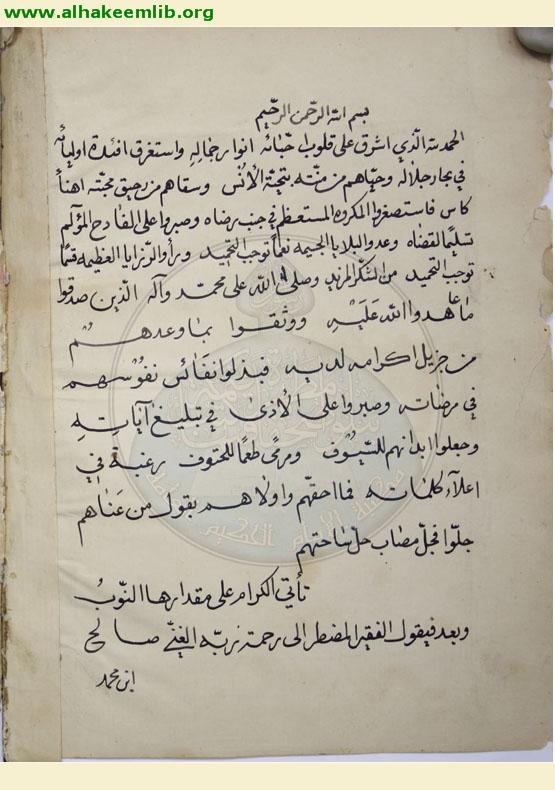 www.alhakeemlib.org
بسم الله الرحمن الرحيم
الحمد لله الذي اشرق على قلوب احبائه انوار جماله واستغرق افئدة اوليائه
في بحار جلاله وحياهم من منته بتحية الأنس وسقاهم من رحيق محبته اهنأ
كاس فاستصغروا المكروه المستعظم في جنب رضاه وصبروا على الفادح المؤلم
تسليما لقضاه وعدوا البلايا الجسيمه نعما توجب التحميد ورأوا الرزايا العظيمه قسما
توجب التحميد من الشكر المزيد وصلى الله على محمد وآله الذين صدقوا
ما عاهدوا الله عليه ووثقوا بما وعدهم
من جزيل اكرامه لديه فبذلوا نفائس نفوسهم
في مرضاته وصبروا على الأذى في تبليغ آياته
وجعلوا ابدانهم للسيوف ومرمى طعما للحتوف رغبة في
اعلآء كلماته فما احقهم واولاهم بقول من عناهم
جلوا فجل مصاب حل بساحتهم
تأتي الكرام على مقدارها النوب
وبعد فيقول الفقير المضطر الى رحمة ربه الغني صالح
ابن محمد